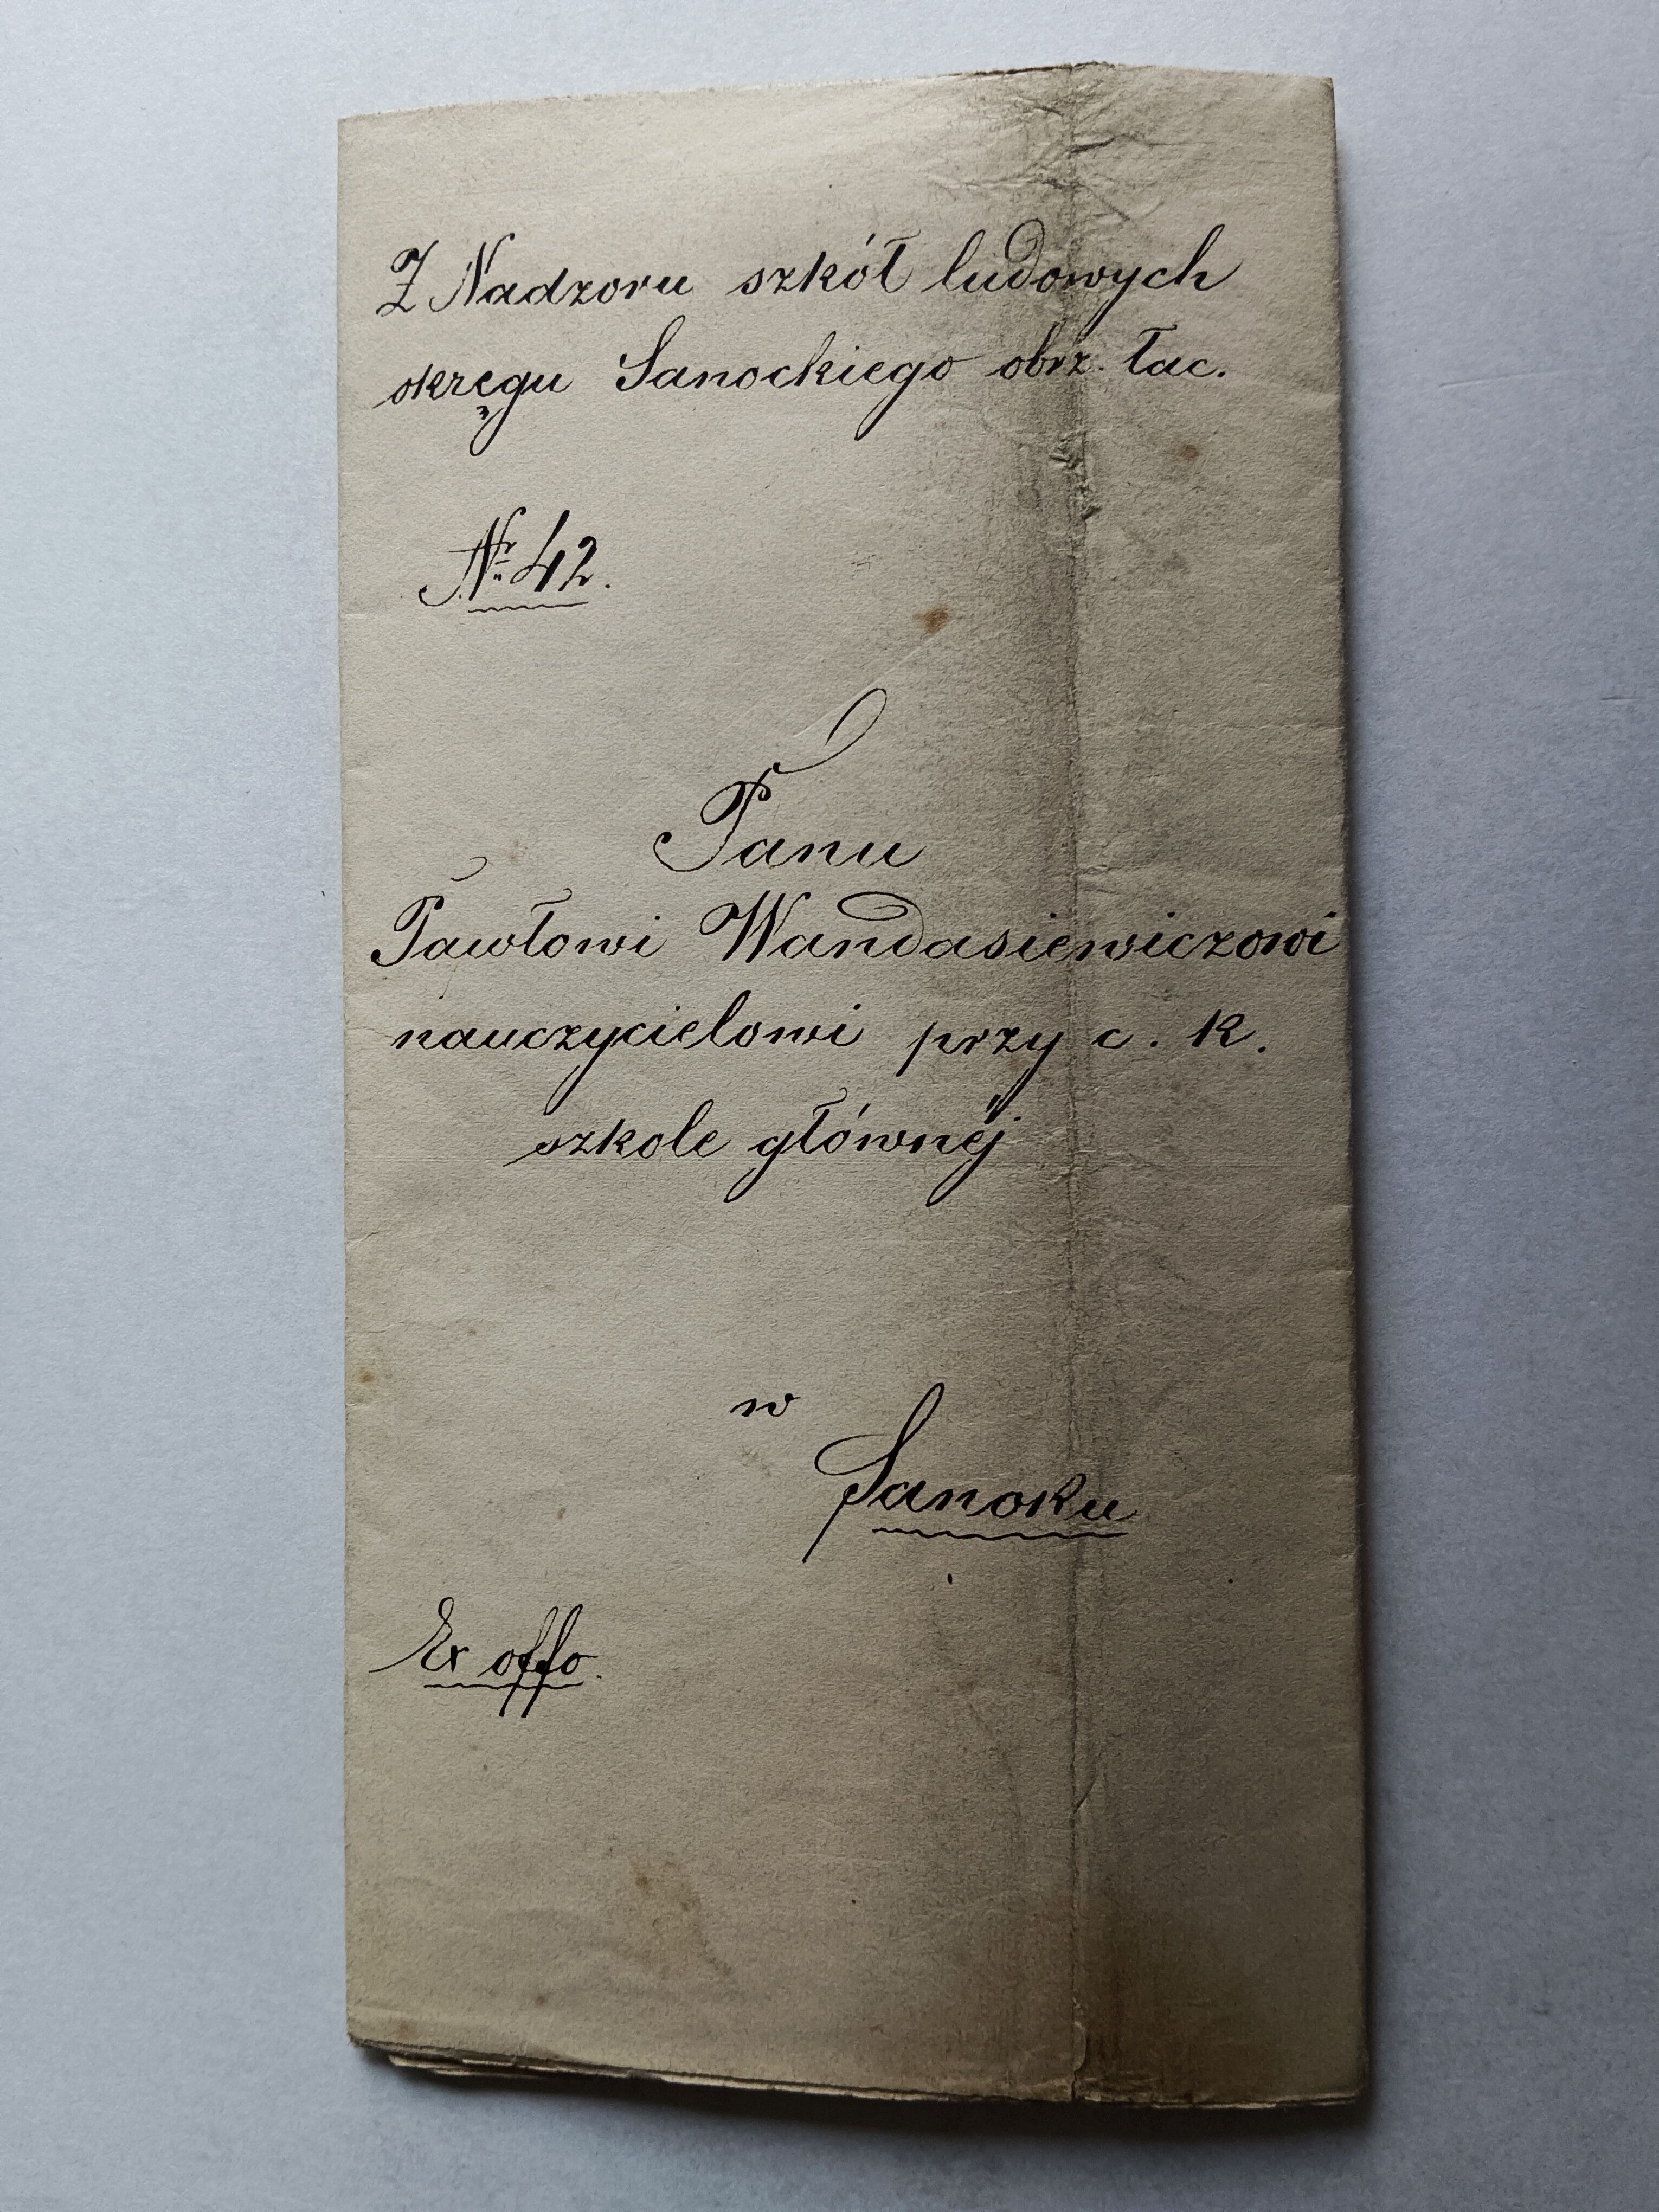 Z Nadzoru szkół ludowych
okręgu Sanockiego obrz. łac.
Nr 42.
Panu
Pawłowi Wandasiewiczowi
nauczycielowi przy c. k.
szkole głównéj
w
Sanoku
Ex offo.